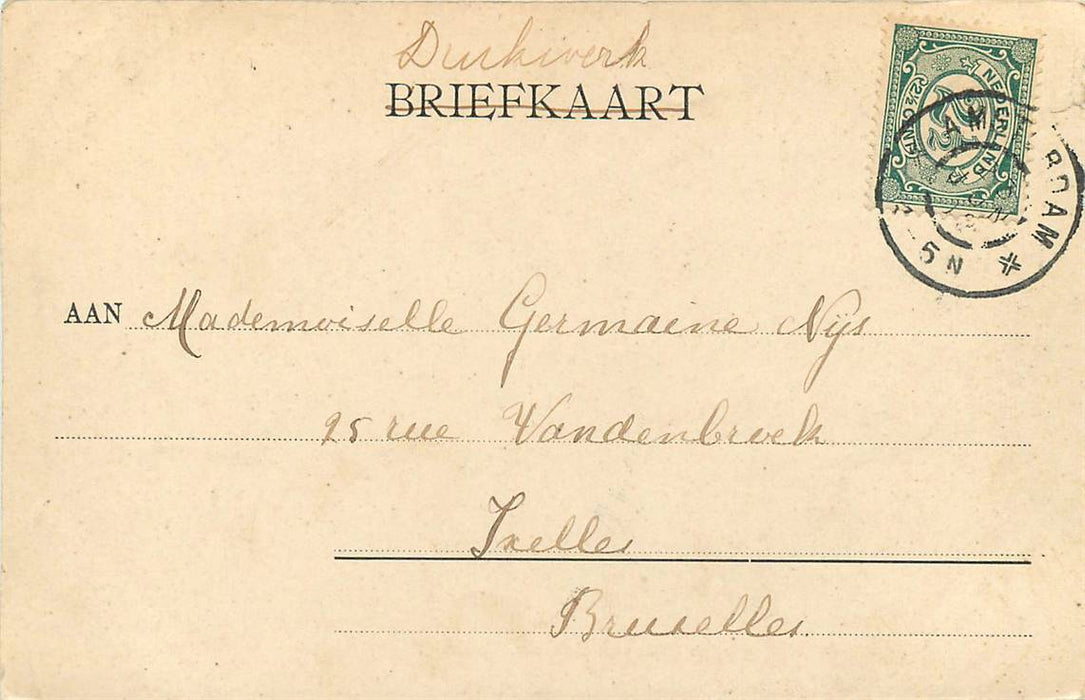 Drukwerk
BRIEFKAART
NEDERLAND
2½ CENT
2½
AM RDAM
5N
AAN Mademoiselle Germaine Nijs
rue Vandenbroek
Ixelles
Bruxelles